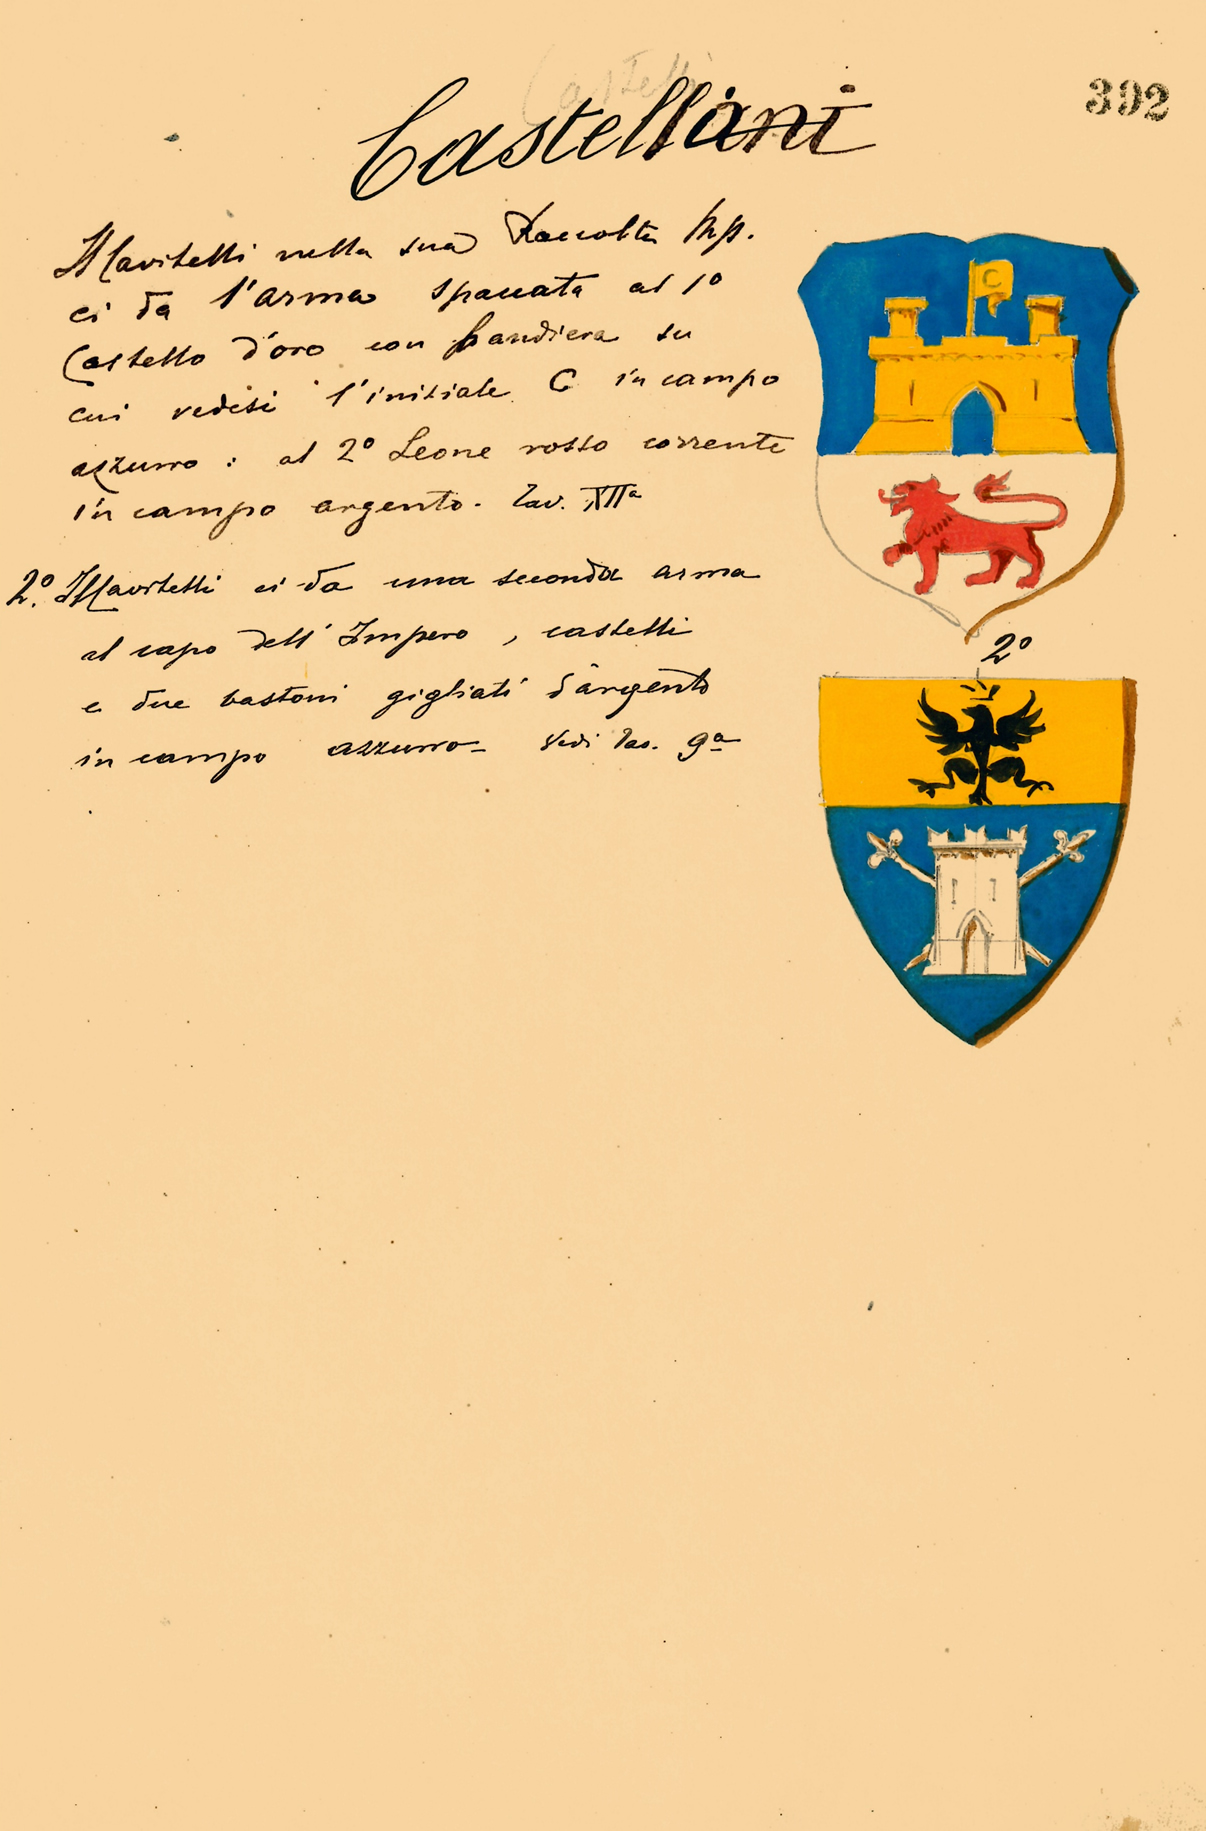 392
Castelli
Castellani
Mavitelli nella sua Raccolta Mp.
ci da l'arma spaccata al 1º
Castello d'oro con bandiera su
cui vedesi l'iniziale C in campo
azzurro : al 2º Leone rosso corrente
in campo argento. Tav. XIIª
2º. Mavitelli ci da una seconda arma
al capo dell' Impero, castelli
e due bastoni gigliati d'argento
in campo azzurro - Vedi Tav. 9ª
C
2º